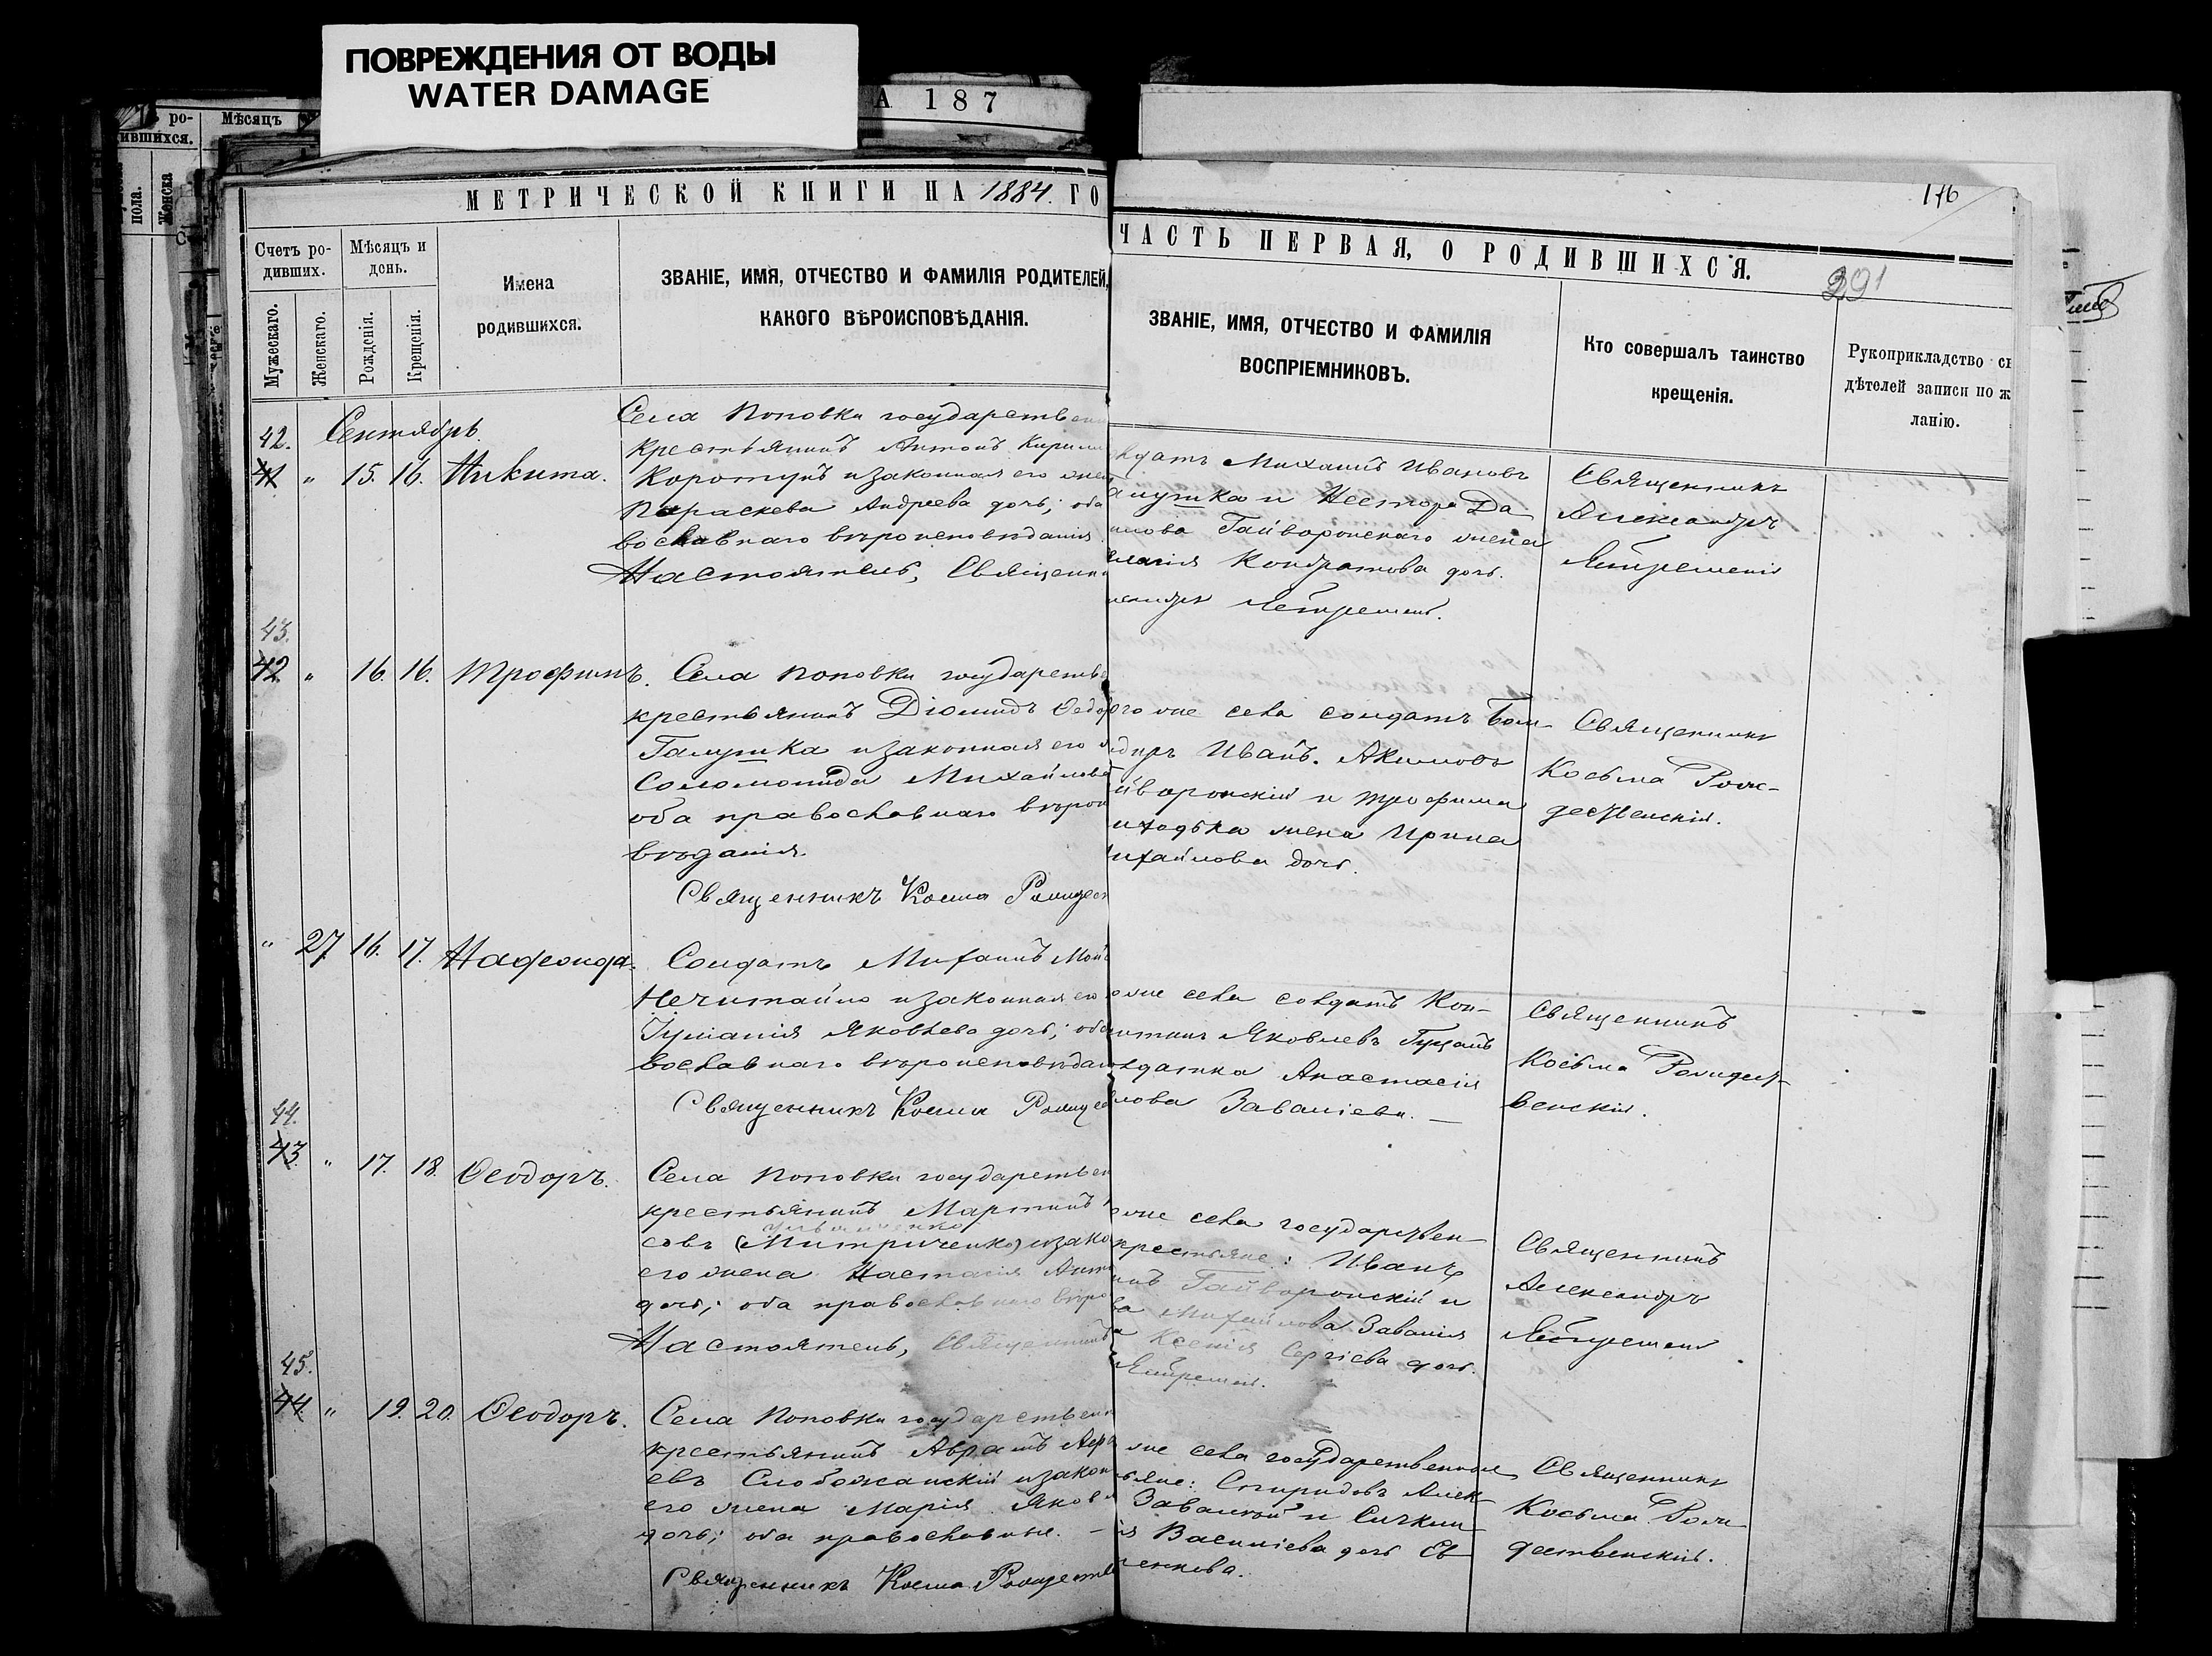 ПОВРЕЖДЕНИЯ ОТ ВОДЫ
WATER DAMAGE
А 187
ро-
дившихся.
Мѣсяцъ
пола.
Женска
МЕТРИЧЕСКОЙ КНИГИ НА 1884. ГО
Счетъ ро-
дивших.
Мѣсяцъ и
день.
Мужескаго.
Женскаго.
Рожденія.
Крещенія.
Имена
родившихся.
ЗВАНІЕ, ИМЯ, ОТЧЕСТВО И ФАМИЛІЯ РОДИТЕЛЕЙ,
КАКОГО ВѢРОИСПОВѢДАНІЯ.
176
ЧАСТЬ ПЕРВАЯ, О РОДИВШИХСЯ.
391
ЗВАНІЕ, ИМЯ, ОТЧЕСТВО И ФАМИЛІЯ
ВОСПРІЕМНИКОВЪ.
Кто совершалъ таинство
крещенія.
Рукоприкладство св
дѣтелей записи по ж
ланію.
42. Сентябрь.
41 " 15. 16. Никита.
Села Поповки государствен
крестьянинъ Антонъ Кирил
Коротунъ и законная его жен
Параскева Андреева дочь; оба
вославнаго вѣроисповѣданія
Настоятель, Священн
лдатъ Михаилъ Ивановъ
алушка и Нестора Да
нилова Гайворонскаго жена
елагія Кондратова дочь.
Священникъ
Александръ
43.
42 " 16. 16. Трофимъ.
Села Поповки государстве
крестьянинъ Діомидъ Ѳедор
Галушка и законная его
Соломонида Михайлова
оба православнаго вѣроис
вѣданія.
Священникъ Косма Рождест
ого же села солдатъ Бом-
диръ Иванъ. Акимовъ
йворонскій и Трофима
жена Ирина
ихайлова дочь.
Священникъ
Косьма Рож-
дественскій.
" 27 16. 17. Надежда.
Солдатъ Михаилъ Мой
Нечитайло и законная его
Іуліанія Яковлева дочь; оба
вославнаго вѣроисповѣдан
Священникъ Косма Рождес
оже села солдатъ Кон-
Яковлевъ Гуцалъ
лдатка Анастасія
лова Завалiева.
Священникъ
Косьма Рождест-
венскій.
44.
43 " 17. 18. Ѳеодоръ.
Села Поповки государствен
крестьянинъ Мартинъ
совъ (Митриченко) изако
его жена Настасія Анто
дочь; оба православнаго вѣро
Настоятель, Священникъ
оже села государствен-
крестьяне: Иванъ
Гайворонскій и
ва Михайлова Завалія
а Ксенія Сергіева дочь.
Священникъ
Александръ
45.
44 " 19. 20. Ѳеодоръ.
Села Поповки государственн
крестьянинъ Аврамъ
евъ Слобожанскій изакон
его жена Марія Яковл
дочь; оба православные.
Священникъ Косма Рождеств
же села государственные
ьяне: Спиридонъ Алек-
Завалій и
я Василіева дочь Ев-
ченкова.
Священникъ
Косьма Рож-
дественскій.